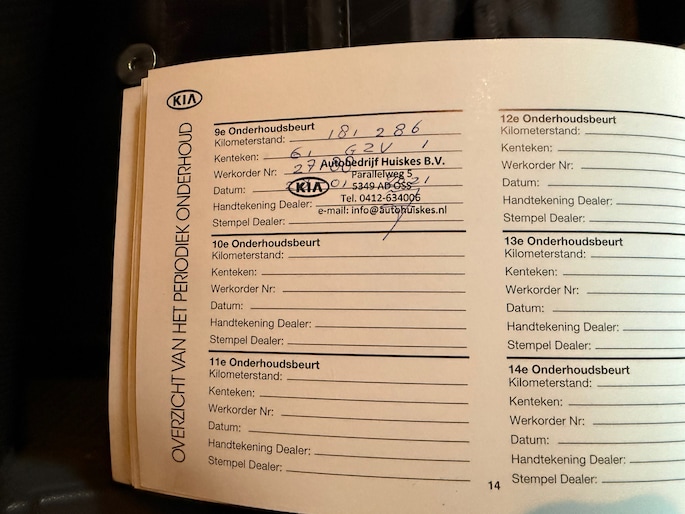 KIA
OVERZICHT VAN HET PERIODIEK ONDERHOUD
9e Onderhoudsbeurt
Kilometerstand: 181 286
Kenteken: 61 GZV 1
Werkorder Nr: 27
Datum: 01 2021
Handtekening Dealer:
Stempel Dealer:
Autobedrijf Huiskes B.V.
Parallelweg 5
KIA 5349 AD OSS
Tel. 0412-634006
e-mail: info@autohuiskes.nl
10e Onderhoudsbeurt
Kilometerstand:
Kenteken:
Werkorder Nr:
Datum:
Handtekening Dealer:
Stempel Dealer:
11e Onderhoudsbeurt
Kilometerstand:
Kenteken:
Werkorder Nr:
Datum:
Handtekening Dealer:
Stempel Dealer:
12e Onderhoudsbeurt
Kilometerstand:
Kenteken:
Werkorder Nr:
Datum:
Handtekening Dealer:
Stempel Dealer:
13e Onderhoudsbeurt
Kilometerstand:
Kenteken:
Werkorder Nr:
Datum:
Handtekening Dealer:
Stempel Dealer:
14e Onderhoudsbeurt
Kilometerstand:
Kenteken:
Werkorder Nr:
Datum:
Handtekening Dealer:
Stempel Dealer:
14